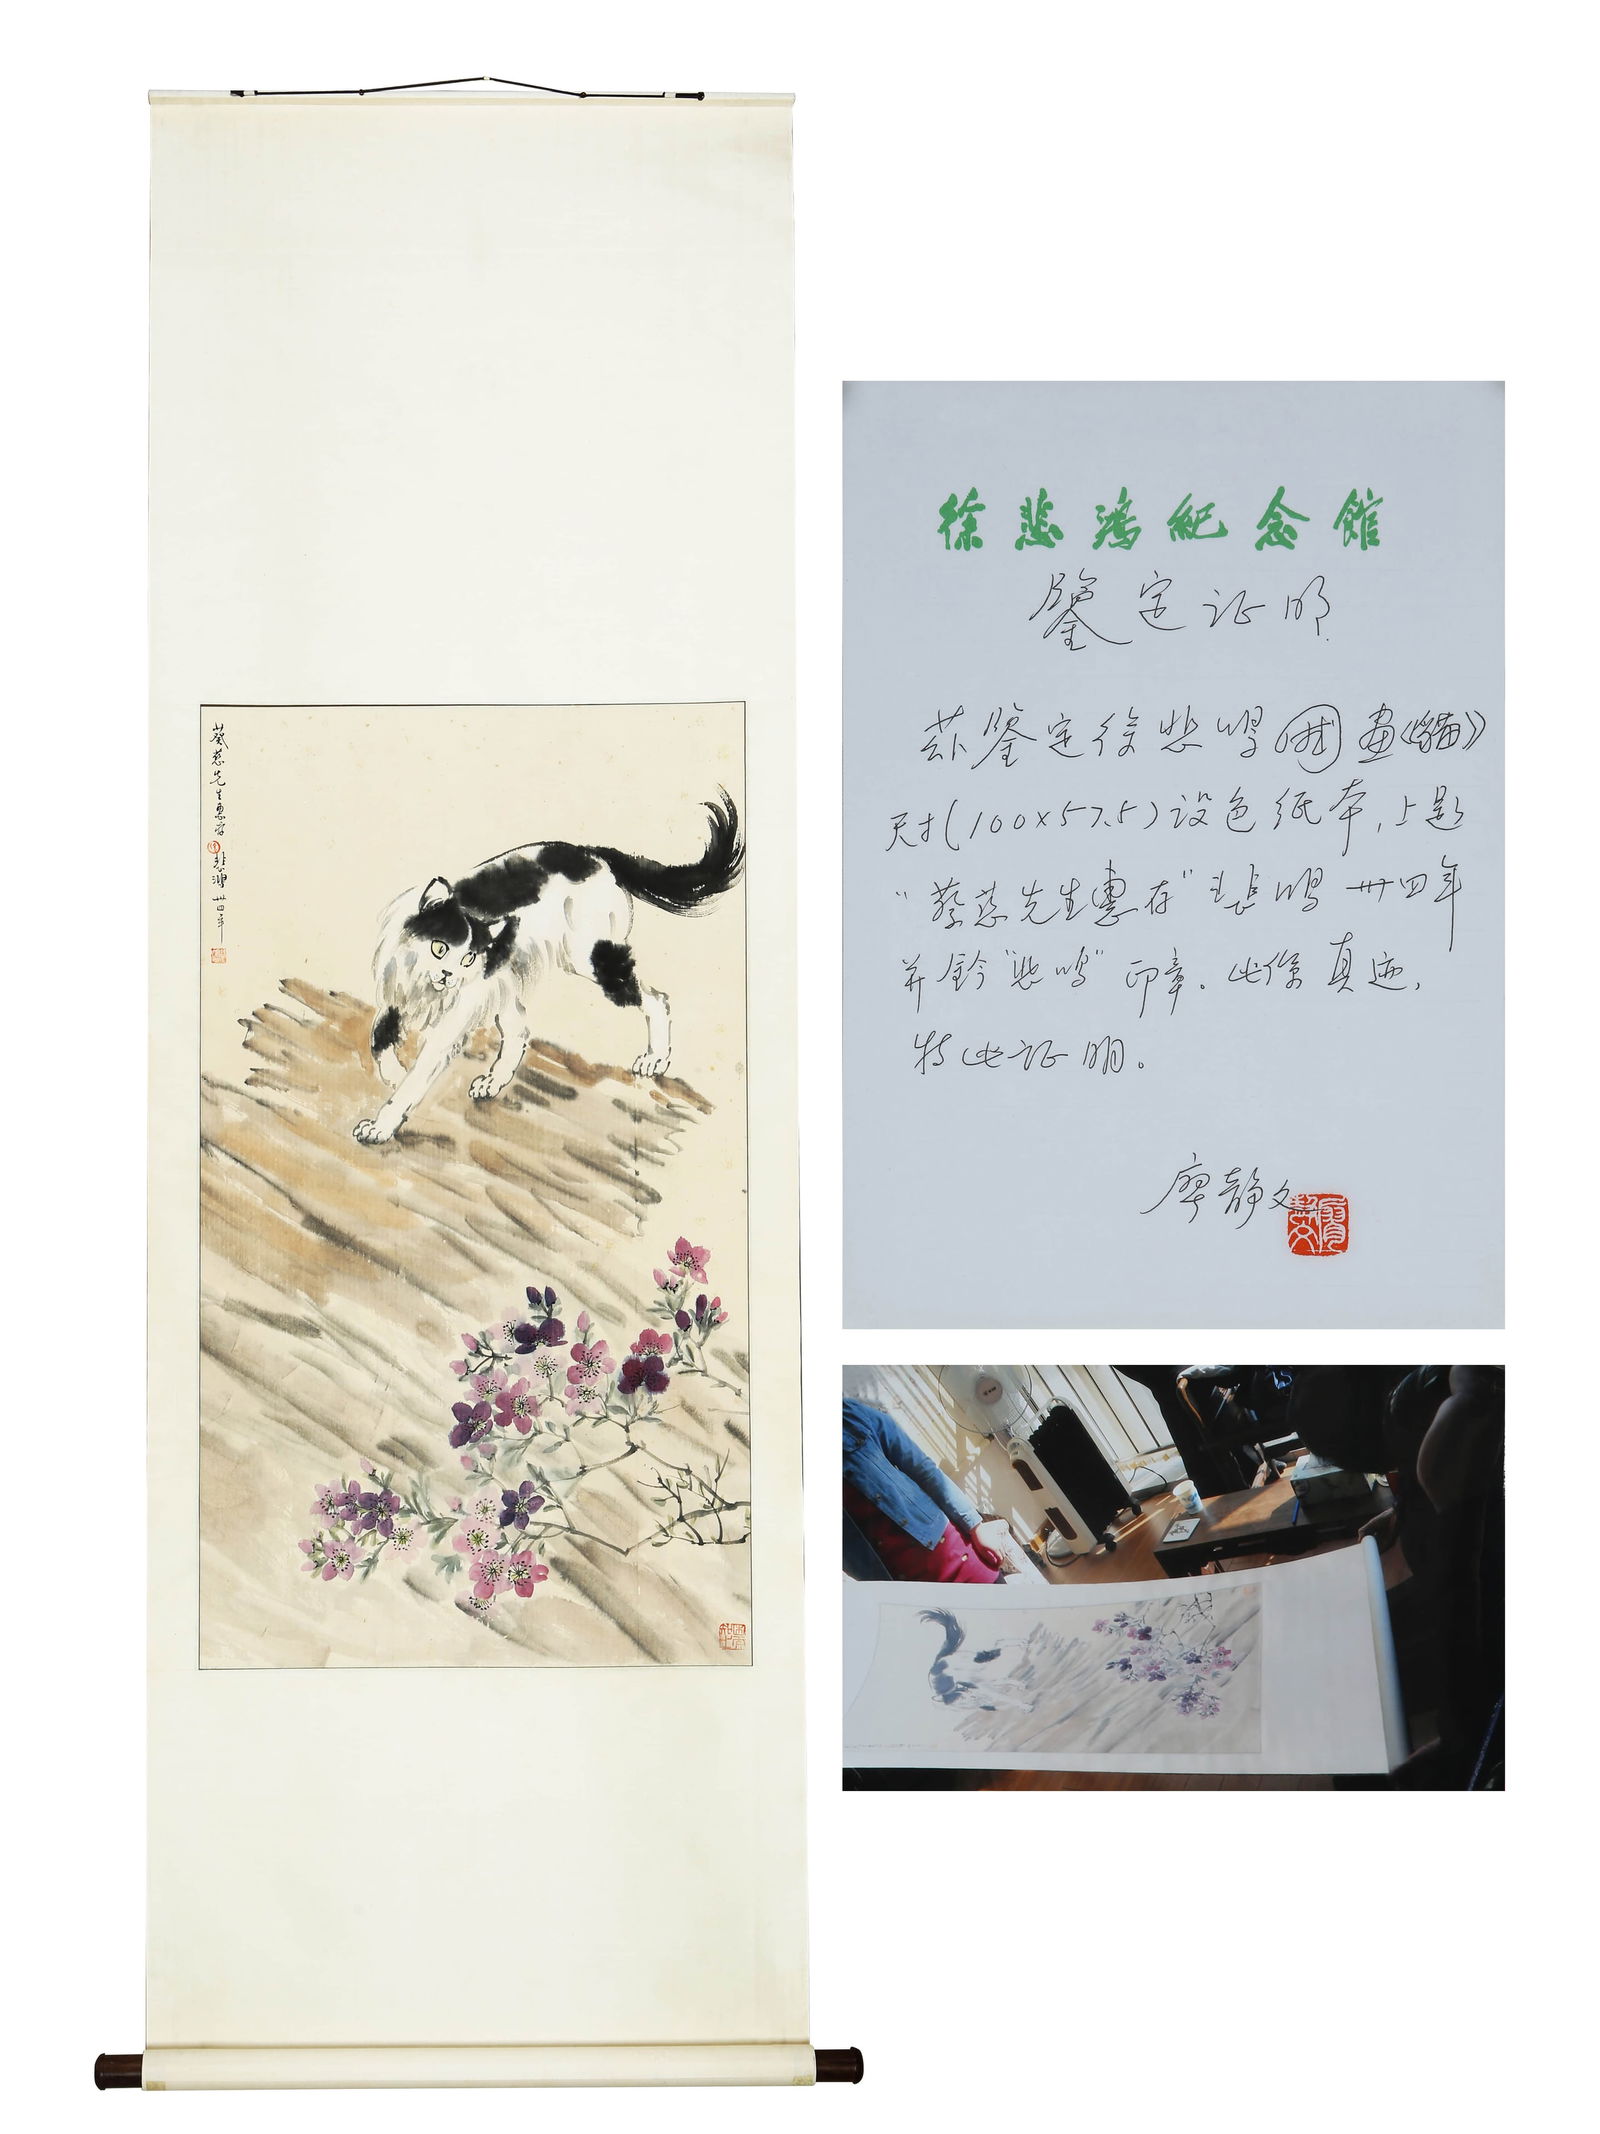 蔡慈先生惠存
悲鴻 卅四年
徐悲鴻紀念館
鑒定证明
兹鉴定徐悲鸿国画《貓》
尺寸(100x57.5)设色纸本,上题
"蔡慈先生惠存"悲鸿 卅四年
并钤"悲鸿"印章。此係真迹,
特此证明。
廖静文